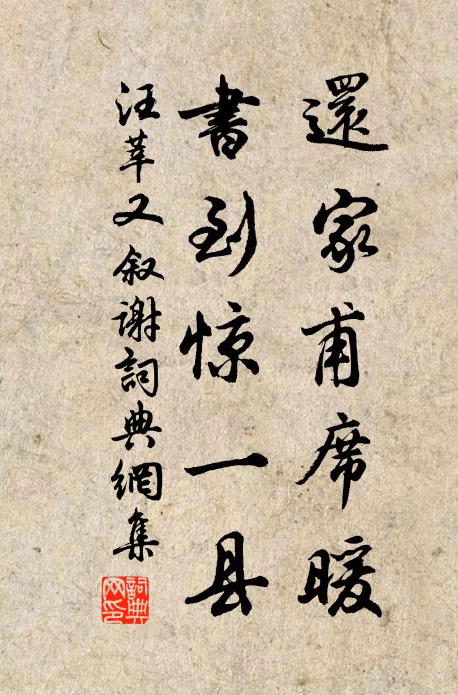 還家甫席暖
書到惊一县
汪莘又叙谢詞典網集
詞典网印